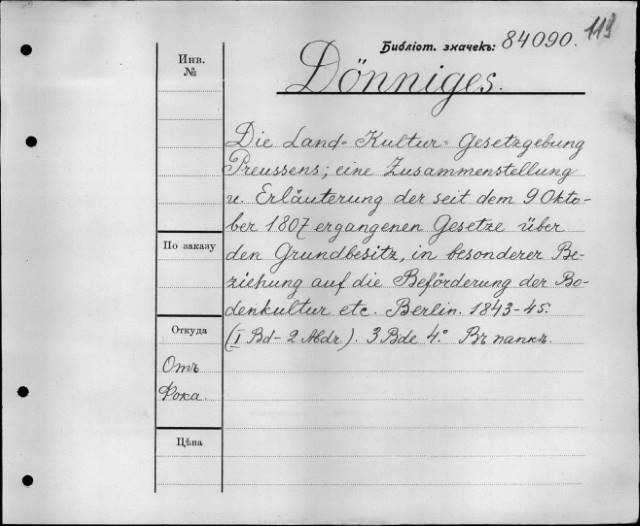 Библіот. значекъ: 84090. 113
Инв.
№
Dönniges.
Die Land-Kultur-Gesetzgebung
Preussens; eine Zusammenstellung
u. Erläuterung der seit dem 9 Okto-
ber 1807 ergangenen Gesetze über
По заказу
den Grundbesitz, in besonderer Be-
ziehung auf die Beförderung der Bo-
denkultur etc. Berlin. 1843-45.
Откуда
(I Bd - 2 Abdr). 3 Bde 4.° Въ папкѣ.
Отъ
Фока.
Цѣна